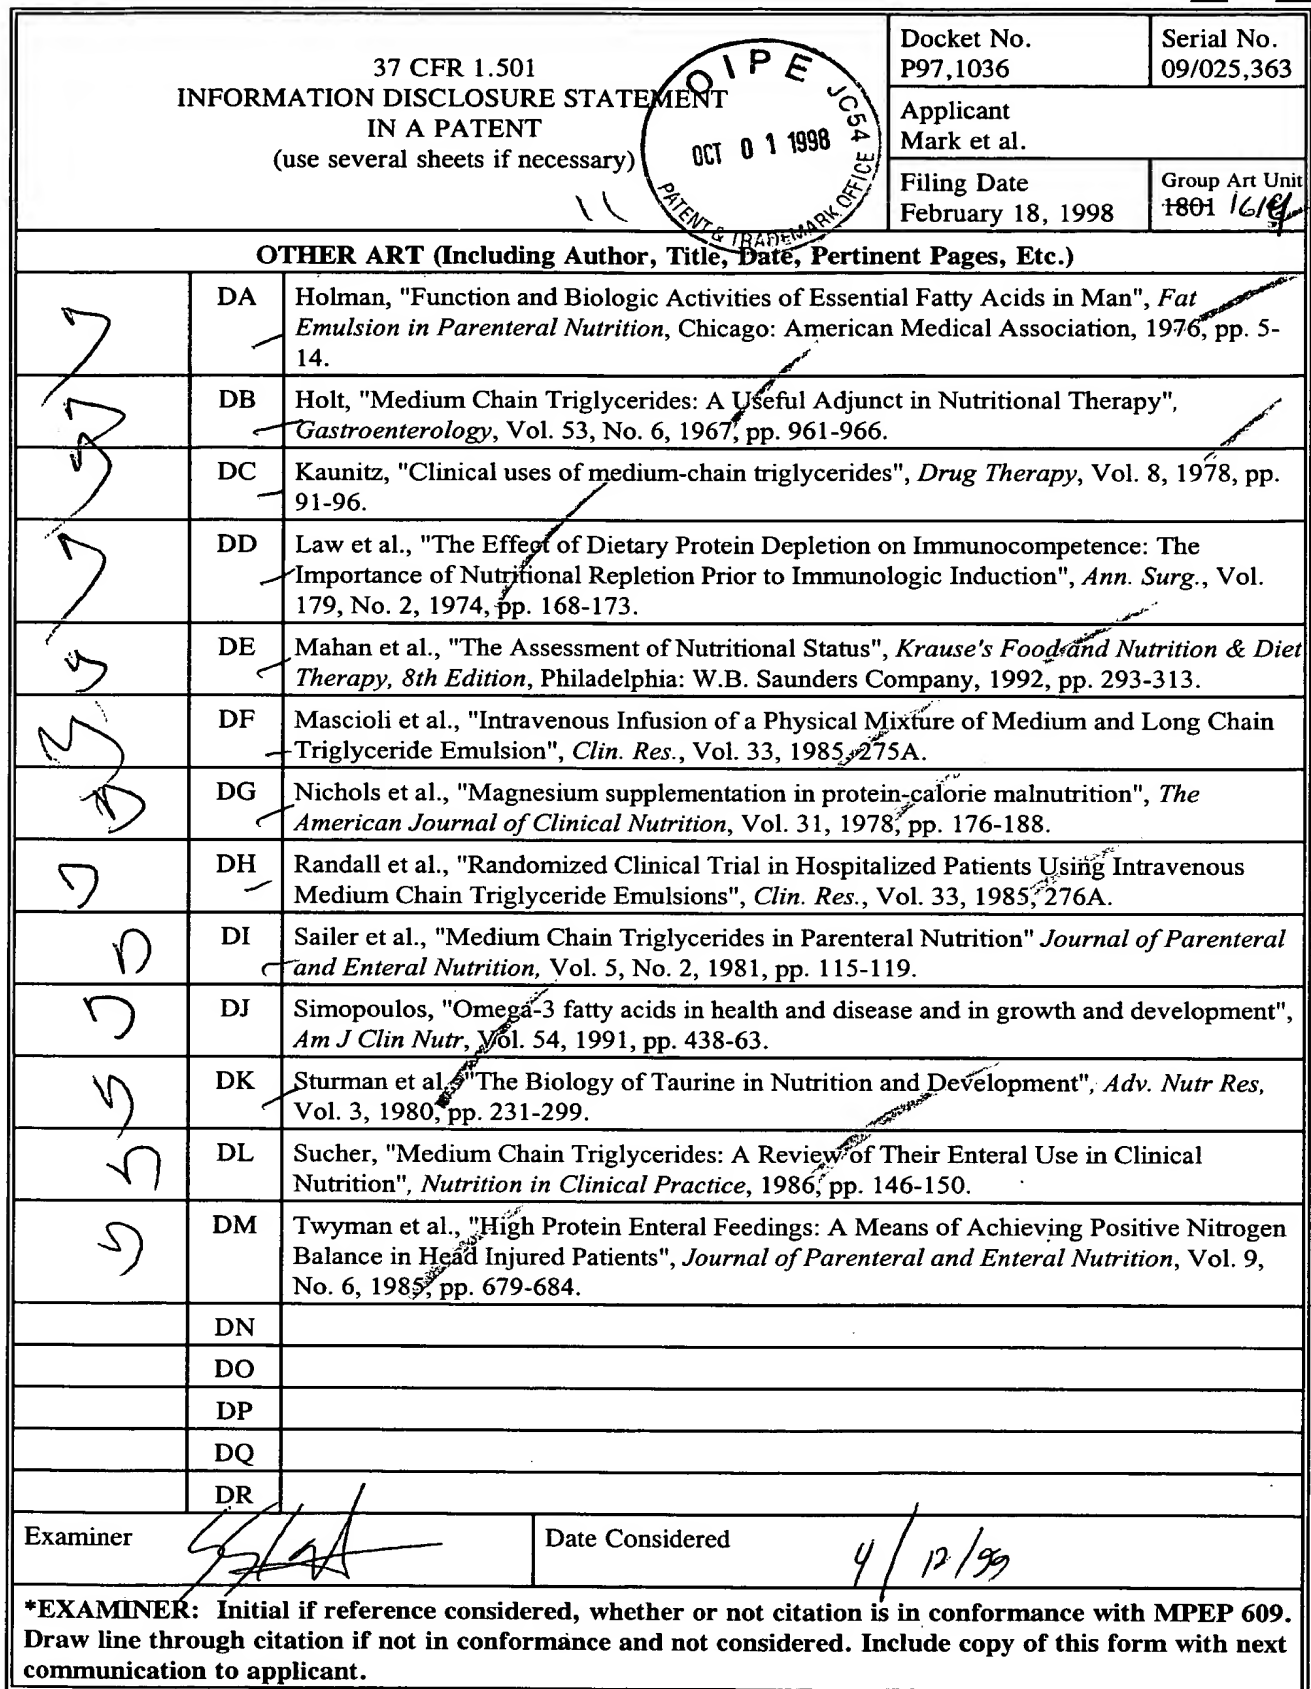 37 CFR 1.501
INFORMATION DISCLOSURE STATEMENT
IN A PATENT
(use several sheets if necessary)
OIPE JC54
OCT 0 1 1998
PATENT & TRADEMARK OFFICE
Docket No.
P97,1036
Serial No.
09/025,363
Applicant
Mark et al.
Filing Date
February 18, 1998
Group Art Unit
1801
OTHER ART (Including Author, Title, Date, Pertinent Pages, Etc.)
DA Holman, "Function and Biologic Activities of Essential Fatty Acids in Man", Fat
Emulsion in Parenteral Nutrition, Chicago: American Medical Association, 1976, pp. 5-
14.
DB Holt, "Medium Chain Triglycerides: A Useful Adjunct in Nutritional Therapy",
Gastroenterology, Vol. 53, No. 6, 1967, pp. 961-966.
DC Kaunitz, "Clinical uses of medium-chain triglycerides", Drug Therapy, Vol. 8, 1978, pp.
91-96.
DD Law et al., "The Effect of Dietary Protein Depletion on Immunocompetence: The
Importance of Nutritional Repletion Prior to Immunologic Induction", Ann. Surg., Vol.
179, No. 2, 1974, pp. 168-173.
DE Mahan et al., "The Assessment of Nutritional Status", Krause's Food and Nutrition & Diet
Therapy, 8th Edition, Philadelphia: W.B. Saunders Company, 1992, pp. 293-313.
DF Mascioli et al., "Intravenous Infusion of a Physical Mixture of Medium and Long Chain
Triglyceride Emulsion", Clin. Res., Vol. 33, 1985, 275A.
DG Nichols et al., "Magnesium supplementation in protein-calorie malnutrition", The
American Journal of Clinical Nutrition, Vol. 31, 1978, pp. 176-188.
DH Randall et al., "Randomized Clinical Trial in Hospitalized Patients Using Intravenous
Medium Chain Triglyceride Emulsions", Clin. Res., Vol. 33, 1985, 276A.
DI Sailer et al., "Medium Chain Triglycerides in Parenteral Nutrition" Journal of Parenteral
and Enteral Nutrition, Vol. 5, No. 2, 1981, pp. 115-119.
DJ Simopoulos, "Omega-3 fatty acids in health and disease and in growth and development",
Am J Clin Nutr, Vol. 54, 1991, pp. 438-63.
DK Sturman et al., "The Biology of Taurine in Nutrition and Development", Adv. Nutr Res,
Vol. 3, 1980, pp. 231-299.
DL Sucher, "Medium Chain Triglycerides: A Review of Their Enteral Use in Clinical
Nutrition", Nutrition in Clinical Practice, 1986, pp. 146-150.
DM Twyman et al., "High Protein Enteral Feedings: A Means of Achieving Positive Nitrogen
Balance in Head Injured Patients", Journal of Parenteral and Enteral Nutrition, Vol. 9,
No. 6, 1985, pp. 679-684.
DN
DO
DP
DQ
DR
Examiner
Date Considered 4/12/99
*EXAMINER: Initial if reference considered, whether or not citation is in conformance with MPEP 609.
Draw line through citation if not in conformance and not considered. Include copy of this form with next
communication to applicant.